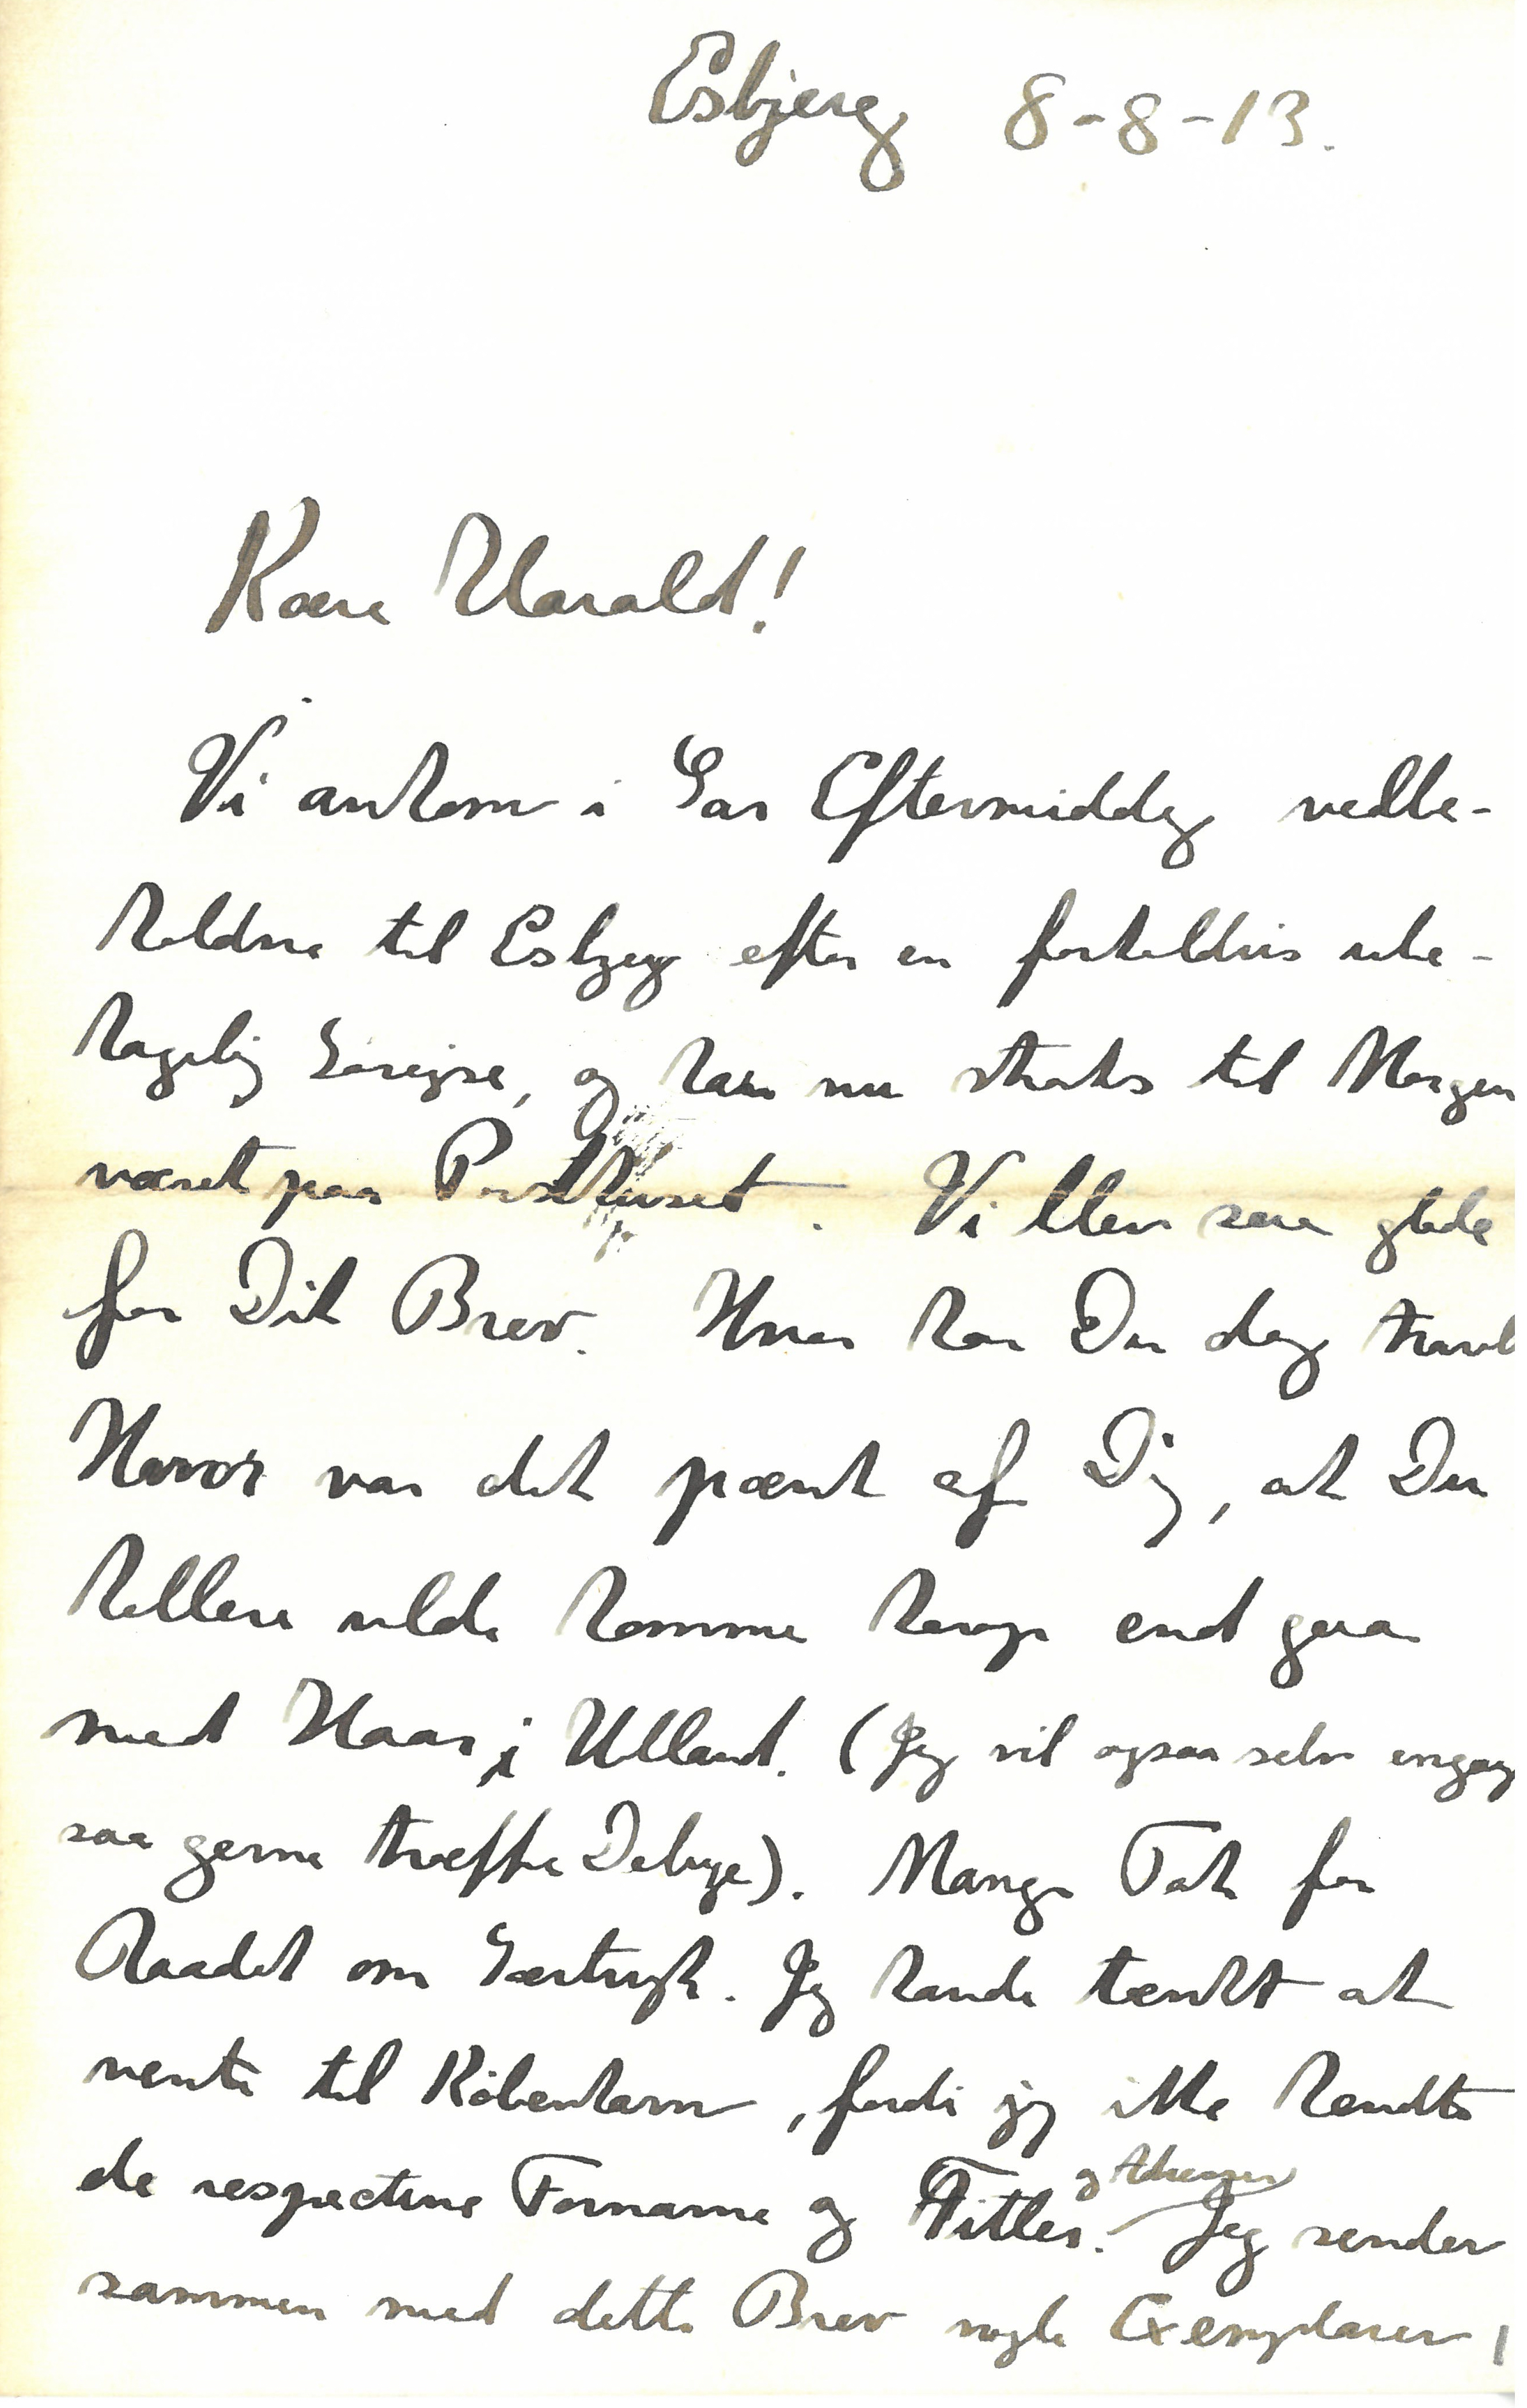 Esbjerg 8-8-13.
Kære Harald!
Vi ankom i Gaar Eftermiddag velbe-
holdne til Esbjerg efter en forholdsvis ube-
hagelig Sørejse, og har nu straks til Morgen
været paa Posthuset. Vi blev saa glade
for Dit Brev. Hvor har Du dog travlt
Hvor var det pænt af Dig, at Du
hellere vilde komme herop end gaa
med Haar i Utland. (Jeg vil ogsaa selv engang
saa gerne træffe Debye). Mange Tak for
Raadet om Særtryk. Jeg havde tænkt at
vente til København, fordi jeg ikke kendte
de respective Fornavne og Titler. og Adresser
Jeg sender
sammen med dette Brev nogle Exemplarer,